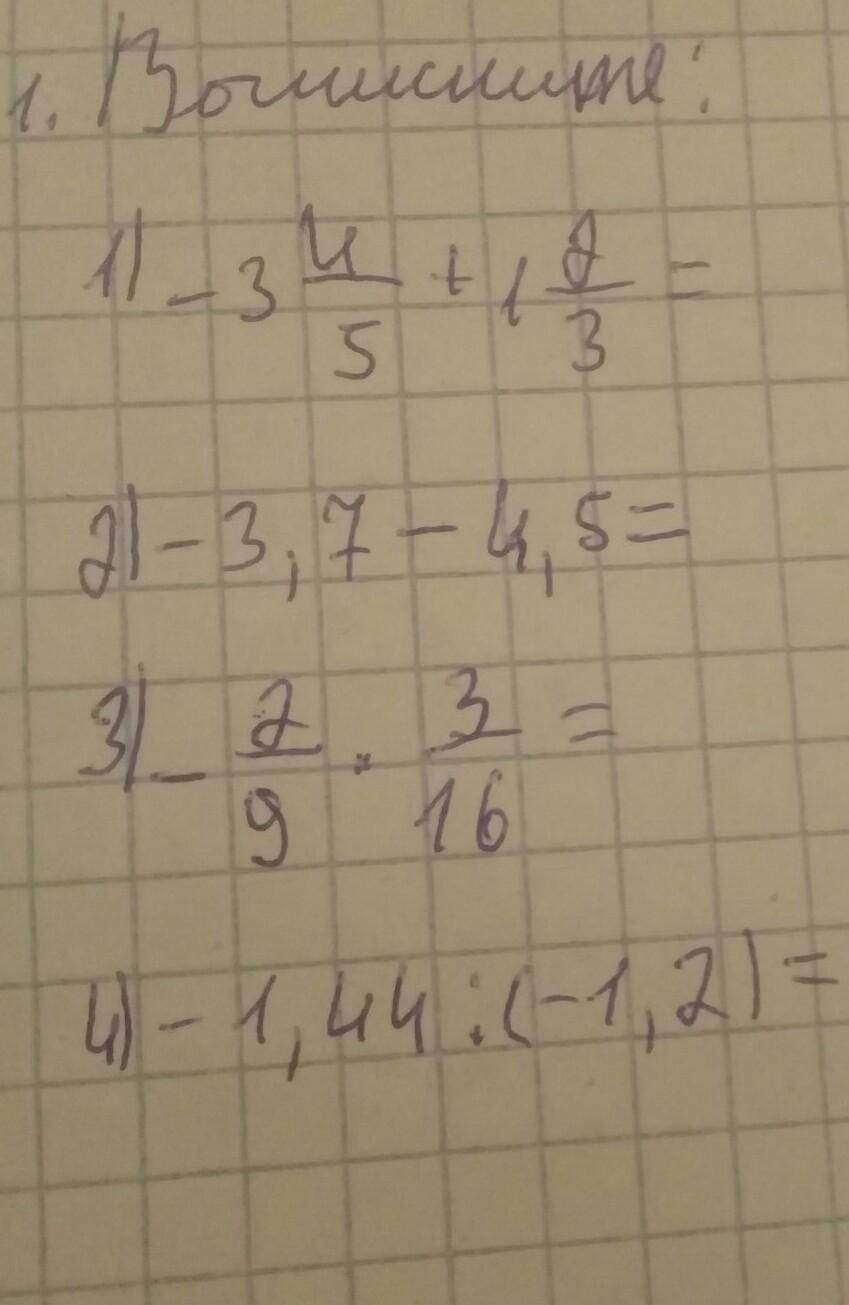 1. Вычислите:
1) -3 4/5 + 1 2/3 =
2) -3,7 - 4,5 =
3) - 2/9 · 3/16 =
4) -1,44 : (-1,2) =